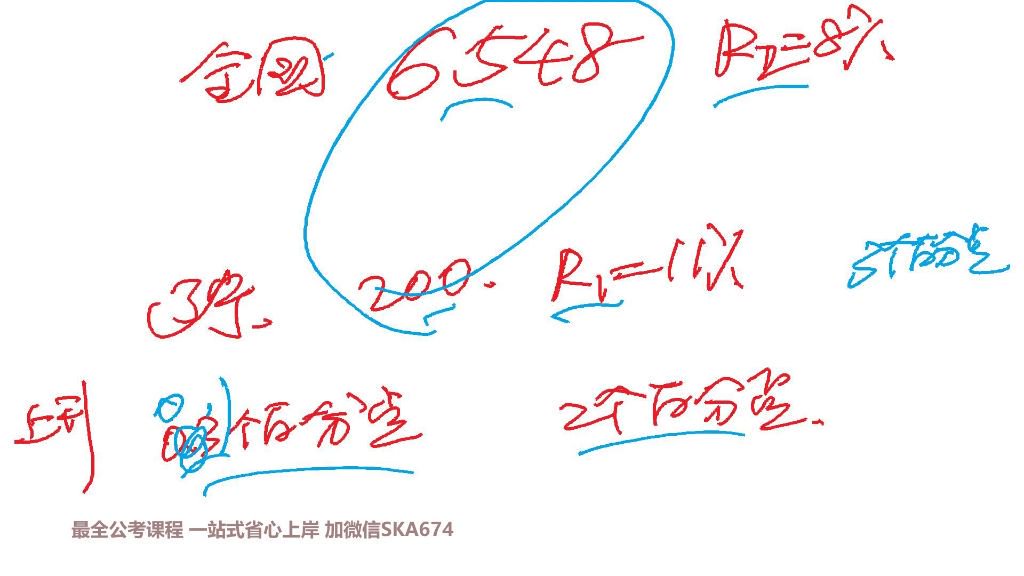 全国 6548 R2=8%
200. R1=11% 5个百分点
上升 个百分点 2个百分点.
最全公考课程 一站式省心上岸 加微信SKA674